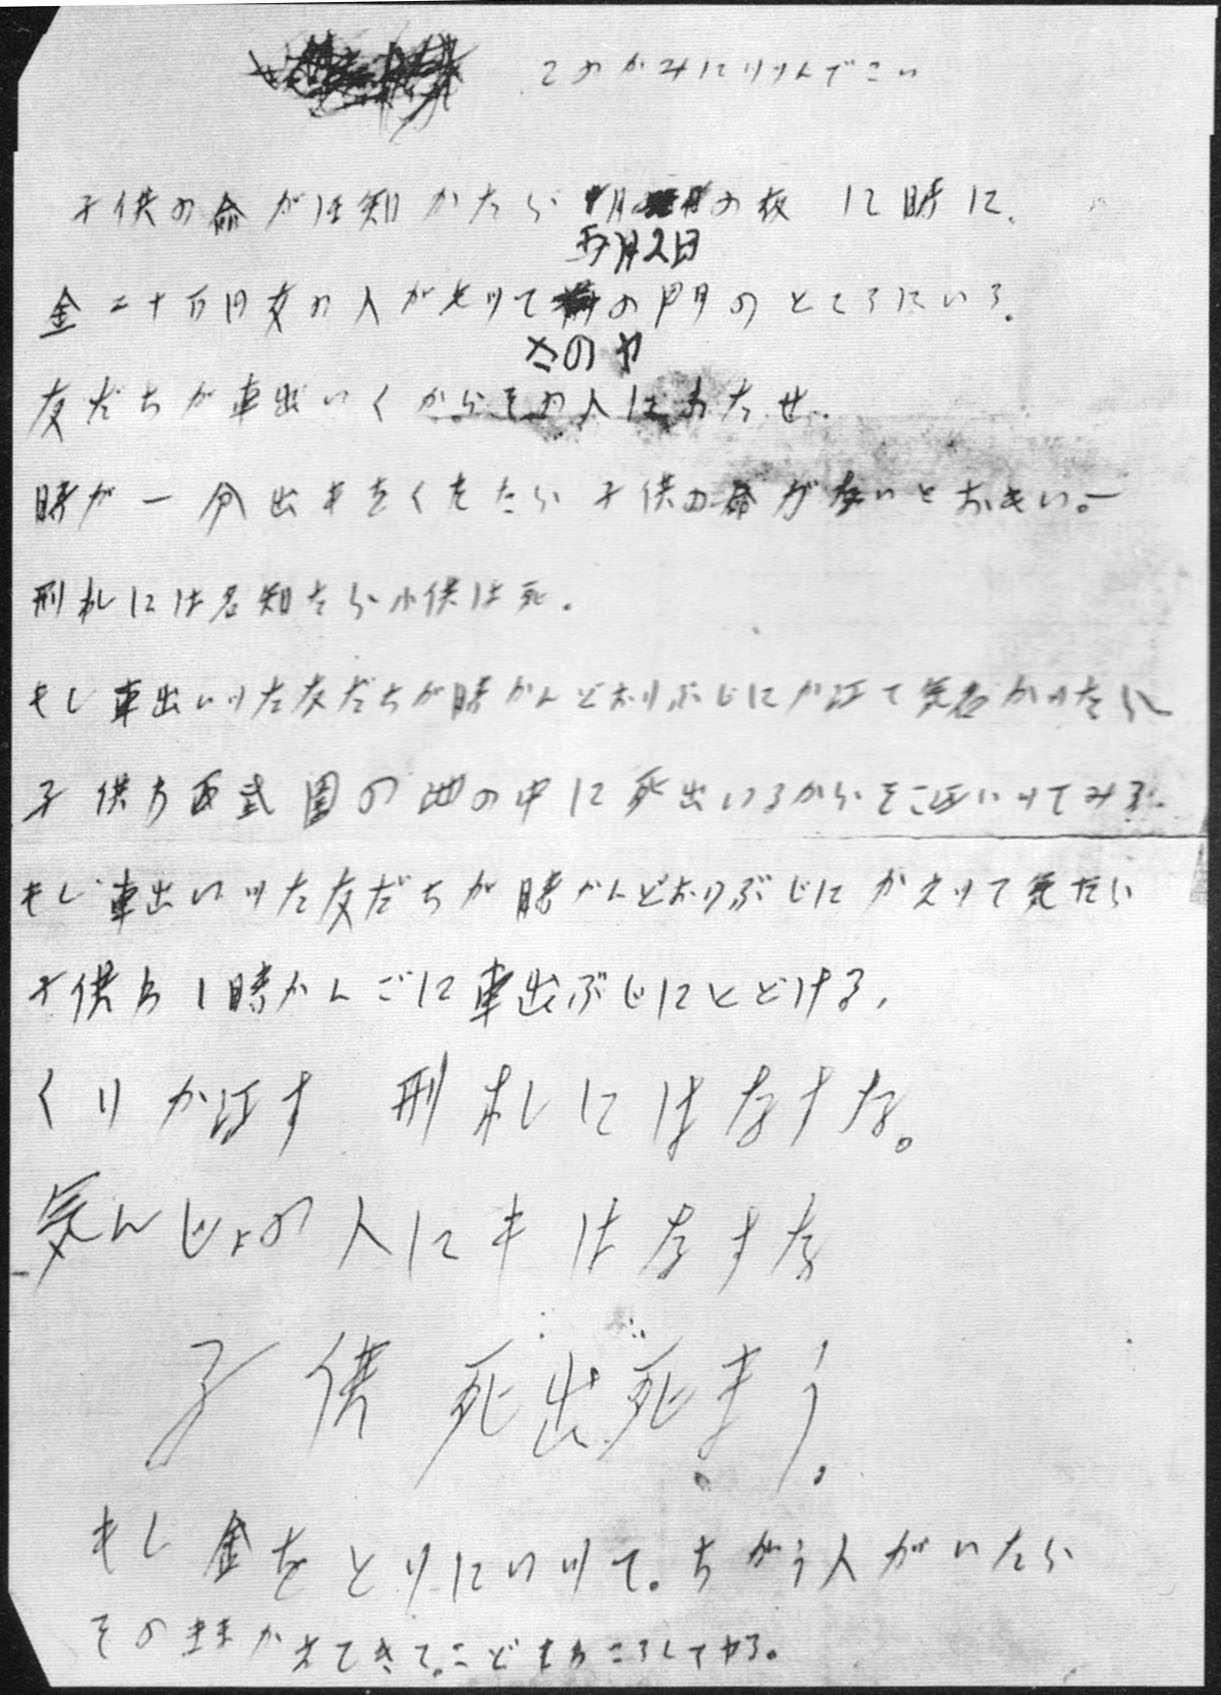 このかみにツツんでこい
子供の命がほ知かたら の夜12時に、
五月2日
金二十万円女の人がもツて の門のところにいろ。
さのヤ
友だちが車出いくからその人にわたせ。
時が一分出もをくれたら子供の命がないとおもい。
刑札には名知たら小供は死。
もし車出いツた友だちが時かんどおりぶじにか江て気名かツたら
子供わ西武園の池の中に死出いるからそこ江いツてみろ。
もし車出いツた友だちが時かんどおりぶじにかえツて気たら
子供わ1時かんごに車出ぶじにとどける。
くりか江す 刑札にはなすな。
気んじょの人にもはなすな
子供死出死まう。
もし金をとりにいツて。ちがう人がいたら
そのままかえてきて。こどもわころしてヤる。